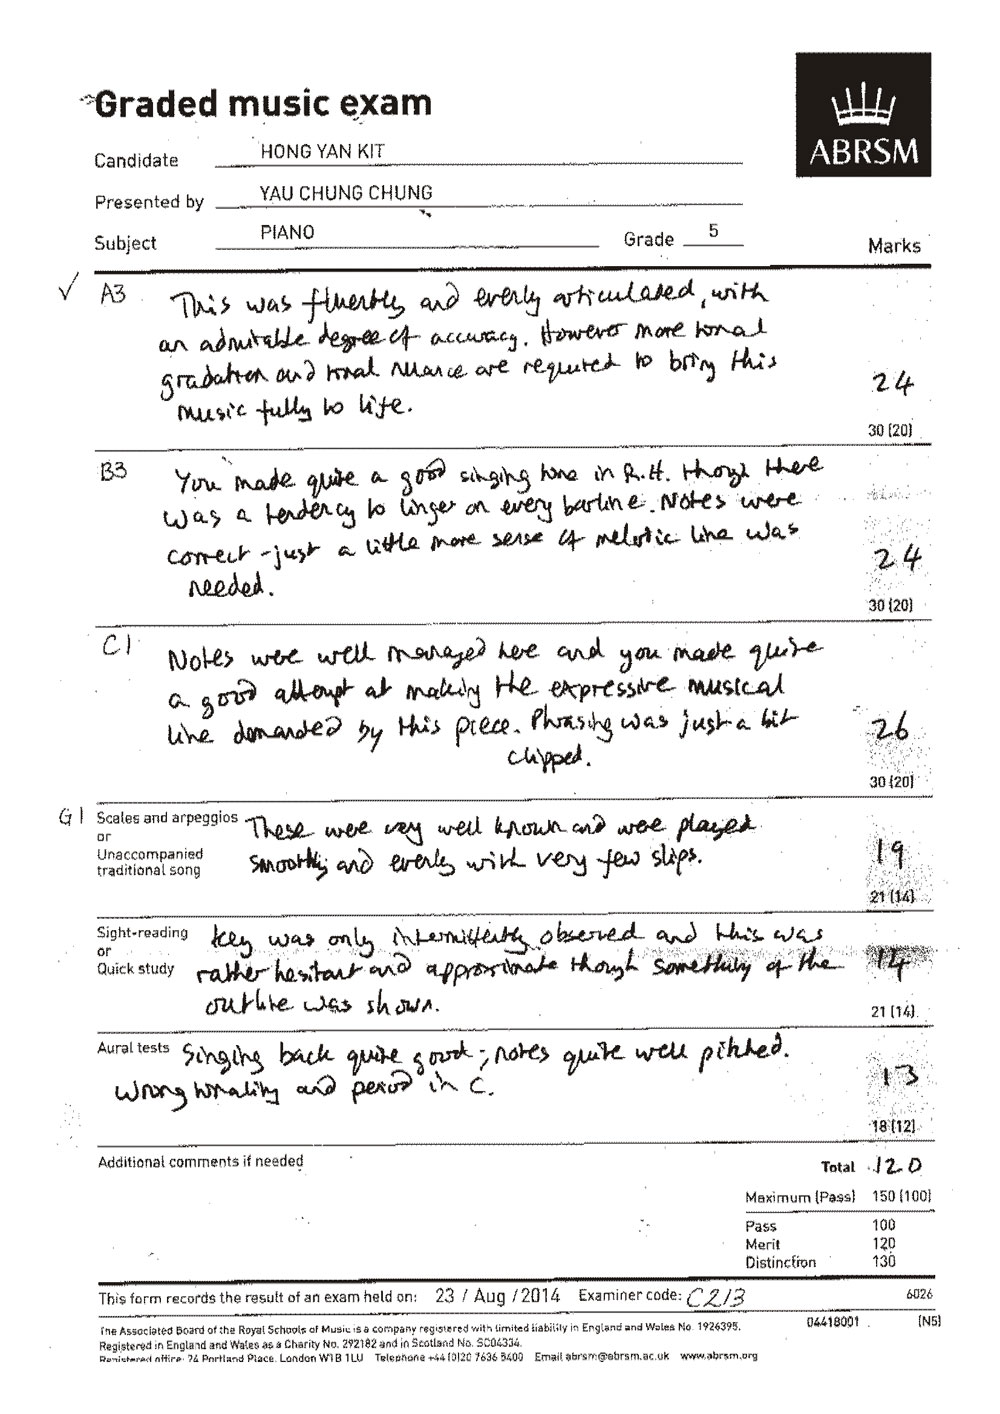 Graded music exam
ABRSM
Candidate HONG YAN KIT
Presented by YAU CHUNG CHUNG
Subject PIANO Grade 5 Marks
✓ A3 This was fluently and evenly articulated, with
an admirable degree of accuracy. However more tonal
gradation and tonal nuance are required to bring this
music fully to life.
24
30 (20)
B3 You made quite a good singing tone in R.H. though there
was a tendency to linger on every barline. Notes were
correct - just a little more sense of melodic line was
needed.
24
30 (20)
C1 Notes were well managed here and you made quite
a good attempt at making the expressive musical
line demanded by this piece. Phrasing was just a bit
clipped.
26
30 (20)
G1 Scales and arpeggios
or
Unaccompanied
traditional song
These were very well known and were played
smoothly and evenly with very few slips.
19
21 (14)
Sight-reading
or
Quick study
Key was only intermittently observed and this was
rather hesitant and approximate though something of the
outline was shown.
14
21 (14)
Aural tests Singing back quite good; notes quite well pitched.
Wrong tonality and period in C.
13
18 (12)
Additional comments if needed
Total 120
Maximum (Pass) 150 (100)
Pass 100
Merit 120
Distinction 130
This form records the result of an exam held on: 23 / Aug / 2014 Examiner code: C213 6026
The Associated Board of the Royal Schools of Music is a company registered with limited liability in England and Wales No. 1926395. 04418001 (N5)
Registered in England and Wales as a Charity No. 292182 and in Scotland No. SC04334.
Registered office: 24 Portland Place, London W1B 1LU Telephone +44 (0)20 7636 5400 Email abrsm@abrsm.ac.uk www.abrsm.org